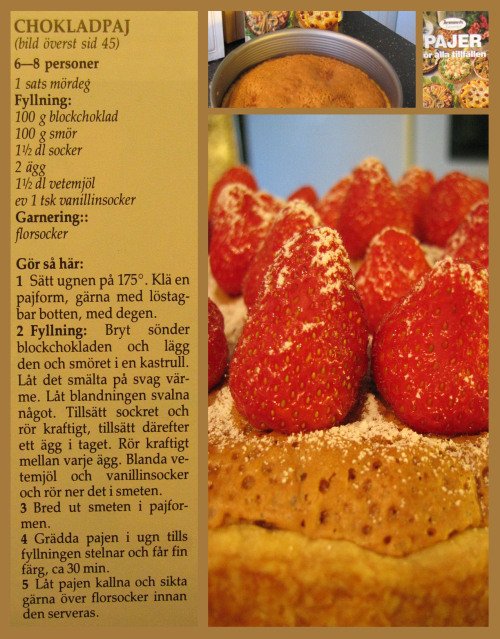 CHOKLADPAJ
(bild överst sid 45)
6—8 personer
1 sats mördeg
Fyllning:
100 g blockchoklad
100 g smör
1½ dl socker
2 ägg
1½ dl vetemjöl
ev 1 tsk vanillinsocker
Garnering::
florsocker
Gör så här:
1 Sätt ugnen på 175°. Klä en
pajform, gärna med löstag-
bar botten, med degen.
2 Fyllning: Bryt sönder
blockchokladen och lägg
den och smöret i en kastrull.
Låt det smälta på svag vär-
me. Låt blandningen svalna
något. Tillsätt sockret och
rör kraftigt, tillsätt därefter
ett ägg i taget. Rör kraftigt
mellan varje ägg. Blanda ve-
temjöl och vanillinsocker
och rör ner det i smeten.
3 Bred ut smeten i pajfor-
men.
4 Grädda pajen i ugn tills
fyllningen stelnar och får fin
färg, ca 30 min.
5 Låt pajen kallna och sikta
gärna över florsocker innan
den serveras.
PAJER
ör alla tillfällen